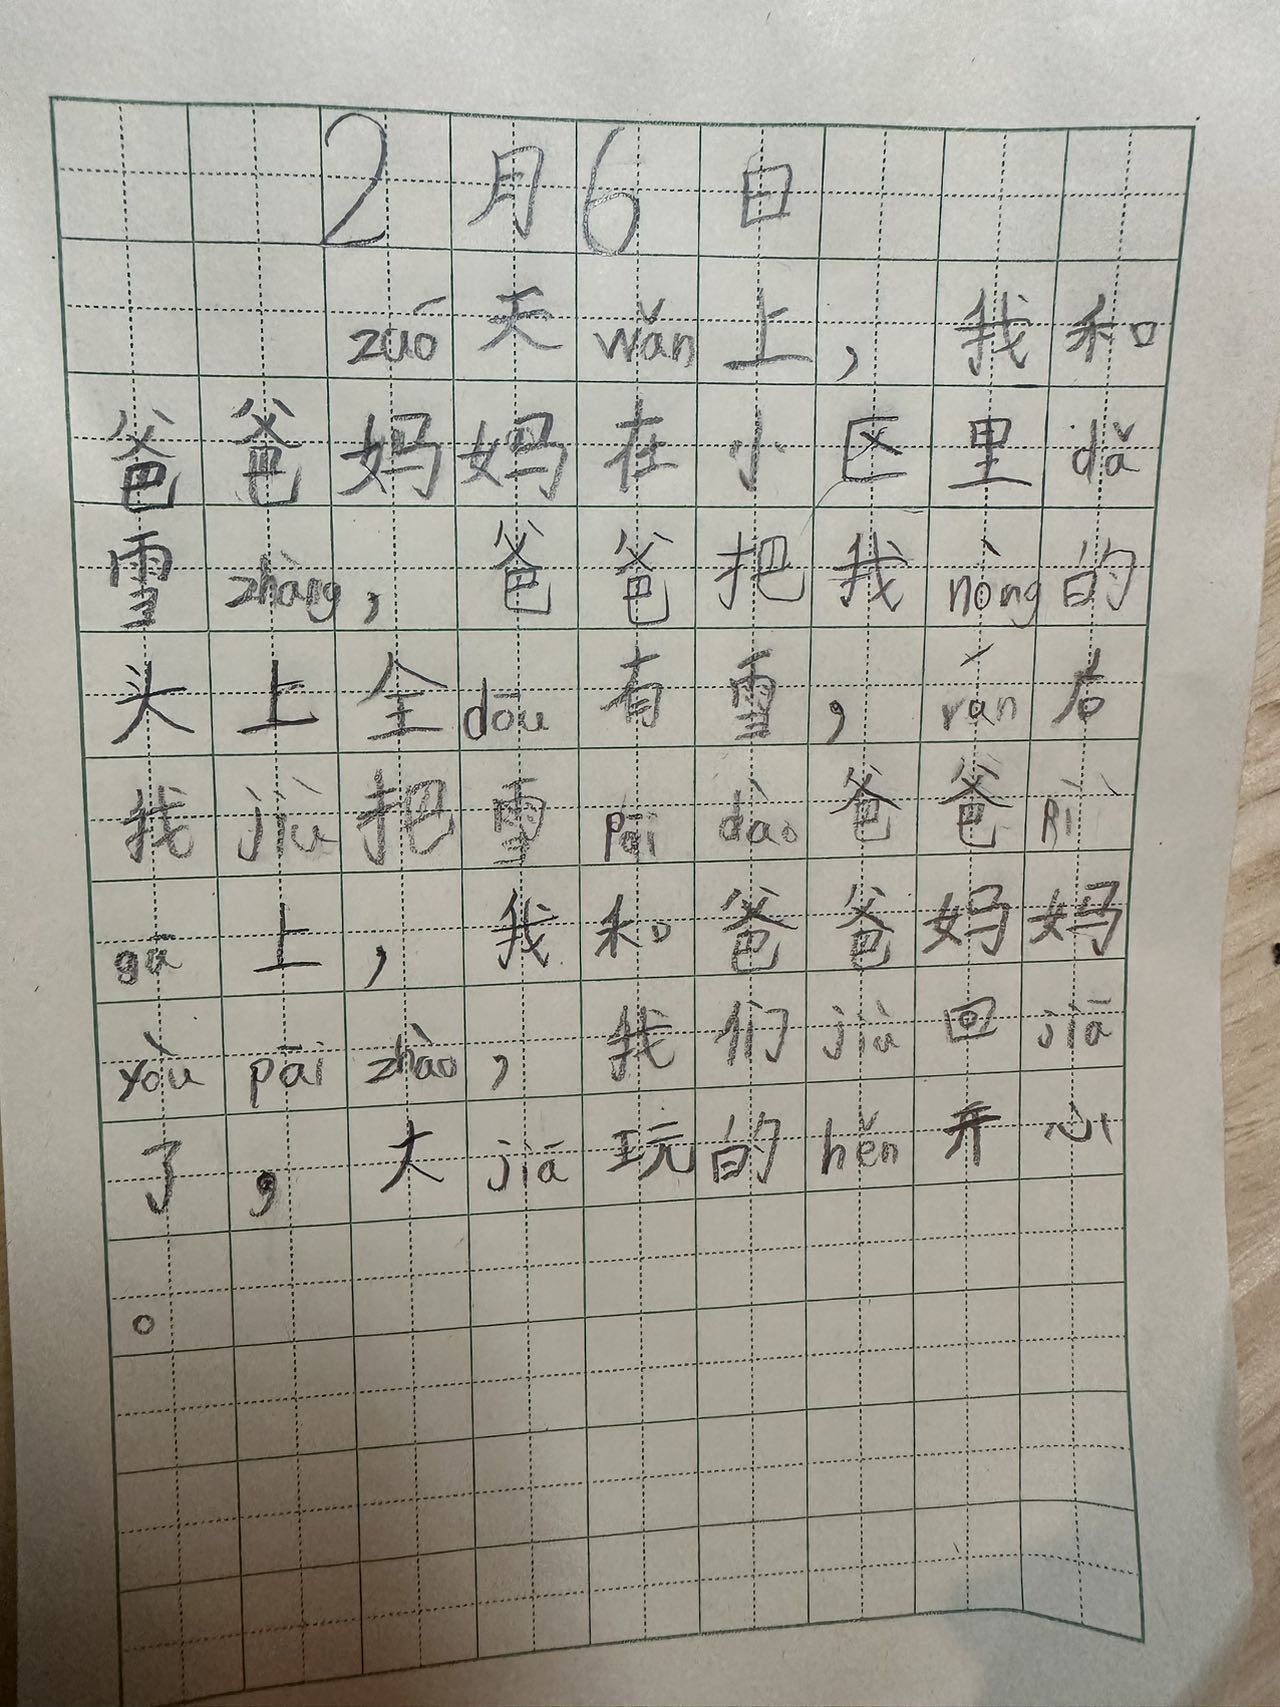 2月6日
zuó天wǎn上，我和
爸爸妈妈在小区里dǎ
雪zhàng，爸爸把我nòng的
头上全dōu有雪，rán后
我jiù把雪pāi dào爸爸pì
gū上，我和爸爸妈妈
yòu pāi zhào，我们jiù回jiā
了，大jiā玩的hěn开心
。